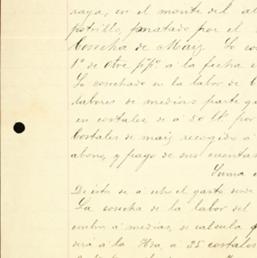 raya, en el monte del
potrillo, matado por el
Cosecha de Maiz. Lo co
1º de Otre ppº a la fecha
Lo cosechado en la labor de
labores de medias parte que
en costales de a 50 lt. por
Costales de maiz recogido á
abono, y pago de sus cuentas
Suma
De esto se a echo el gasto
La cosecha de la labor del
sembró á medias, se calcula
será a la Hda, a 25 costales